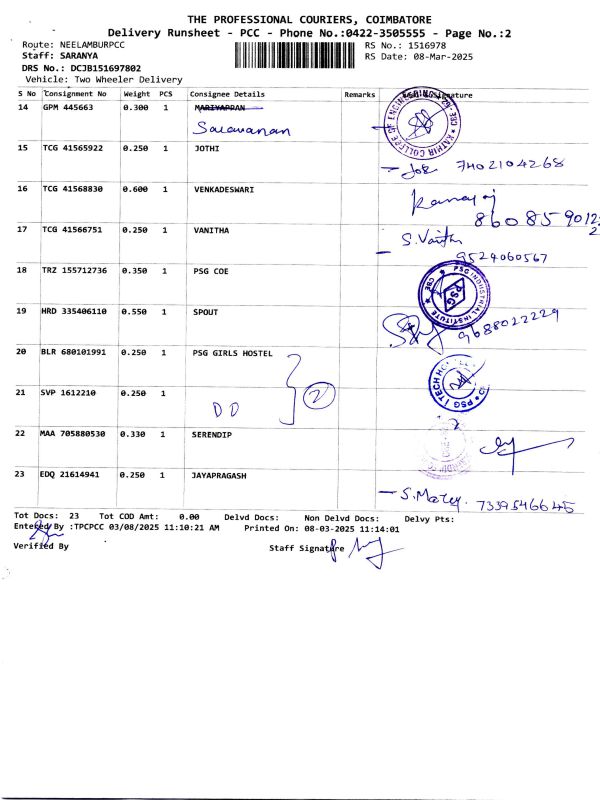 THE PROFESSIONAL COURIERS, COIMBATORE
Delivery Runsheet - PCC - Phone No.:0422-3505555 - Page No.:2
Route: NEELAMBURPCC RS No.: 1516978
Staff: SARANYA RS Date: 08-Mar-2025
DRS No.: DCJB151697802
Vehicle: Two Wheeler Delivery
S No Consignment No Weight PCS Consignee Details Remarks Signature
14 GPM 445663 0.300 1 MARIYAPPAN
Saravanan
15 TCG 41565922 0.250 1 JOTHI
7402104268
16 TCG 41568830 0.600 1 VENKADESWARI
17 TCG 41566751 0.250 1 VANITHA
9524060567
18 TRZ 155712736 0.350 1 PSG COE
PSG INDUSTRIAL INSTITUTE CBE
19 HRD 335406110 0.550 1 SPOUT
9688022229
20 BLR 680101991 0.250 1 PSG GIRLS HOSTEL
21 SVP 1612210 0.250 1
DD 2
22 MAA 705880530 0.330 1 SERENDIP
23 EDQ 21614941 0.250 1 JAYAPRAGASH
7339546645
Tot Docs: 23 Tot COD Amt: 0.00 Delvd Docs: Non Delvd Docs: Delvy Pts:
Entered By :TPCPCC 03/08/2025 11:10:21 AM Printed On: 08-03-2025 11:14:01
Verified By Staff Signature